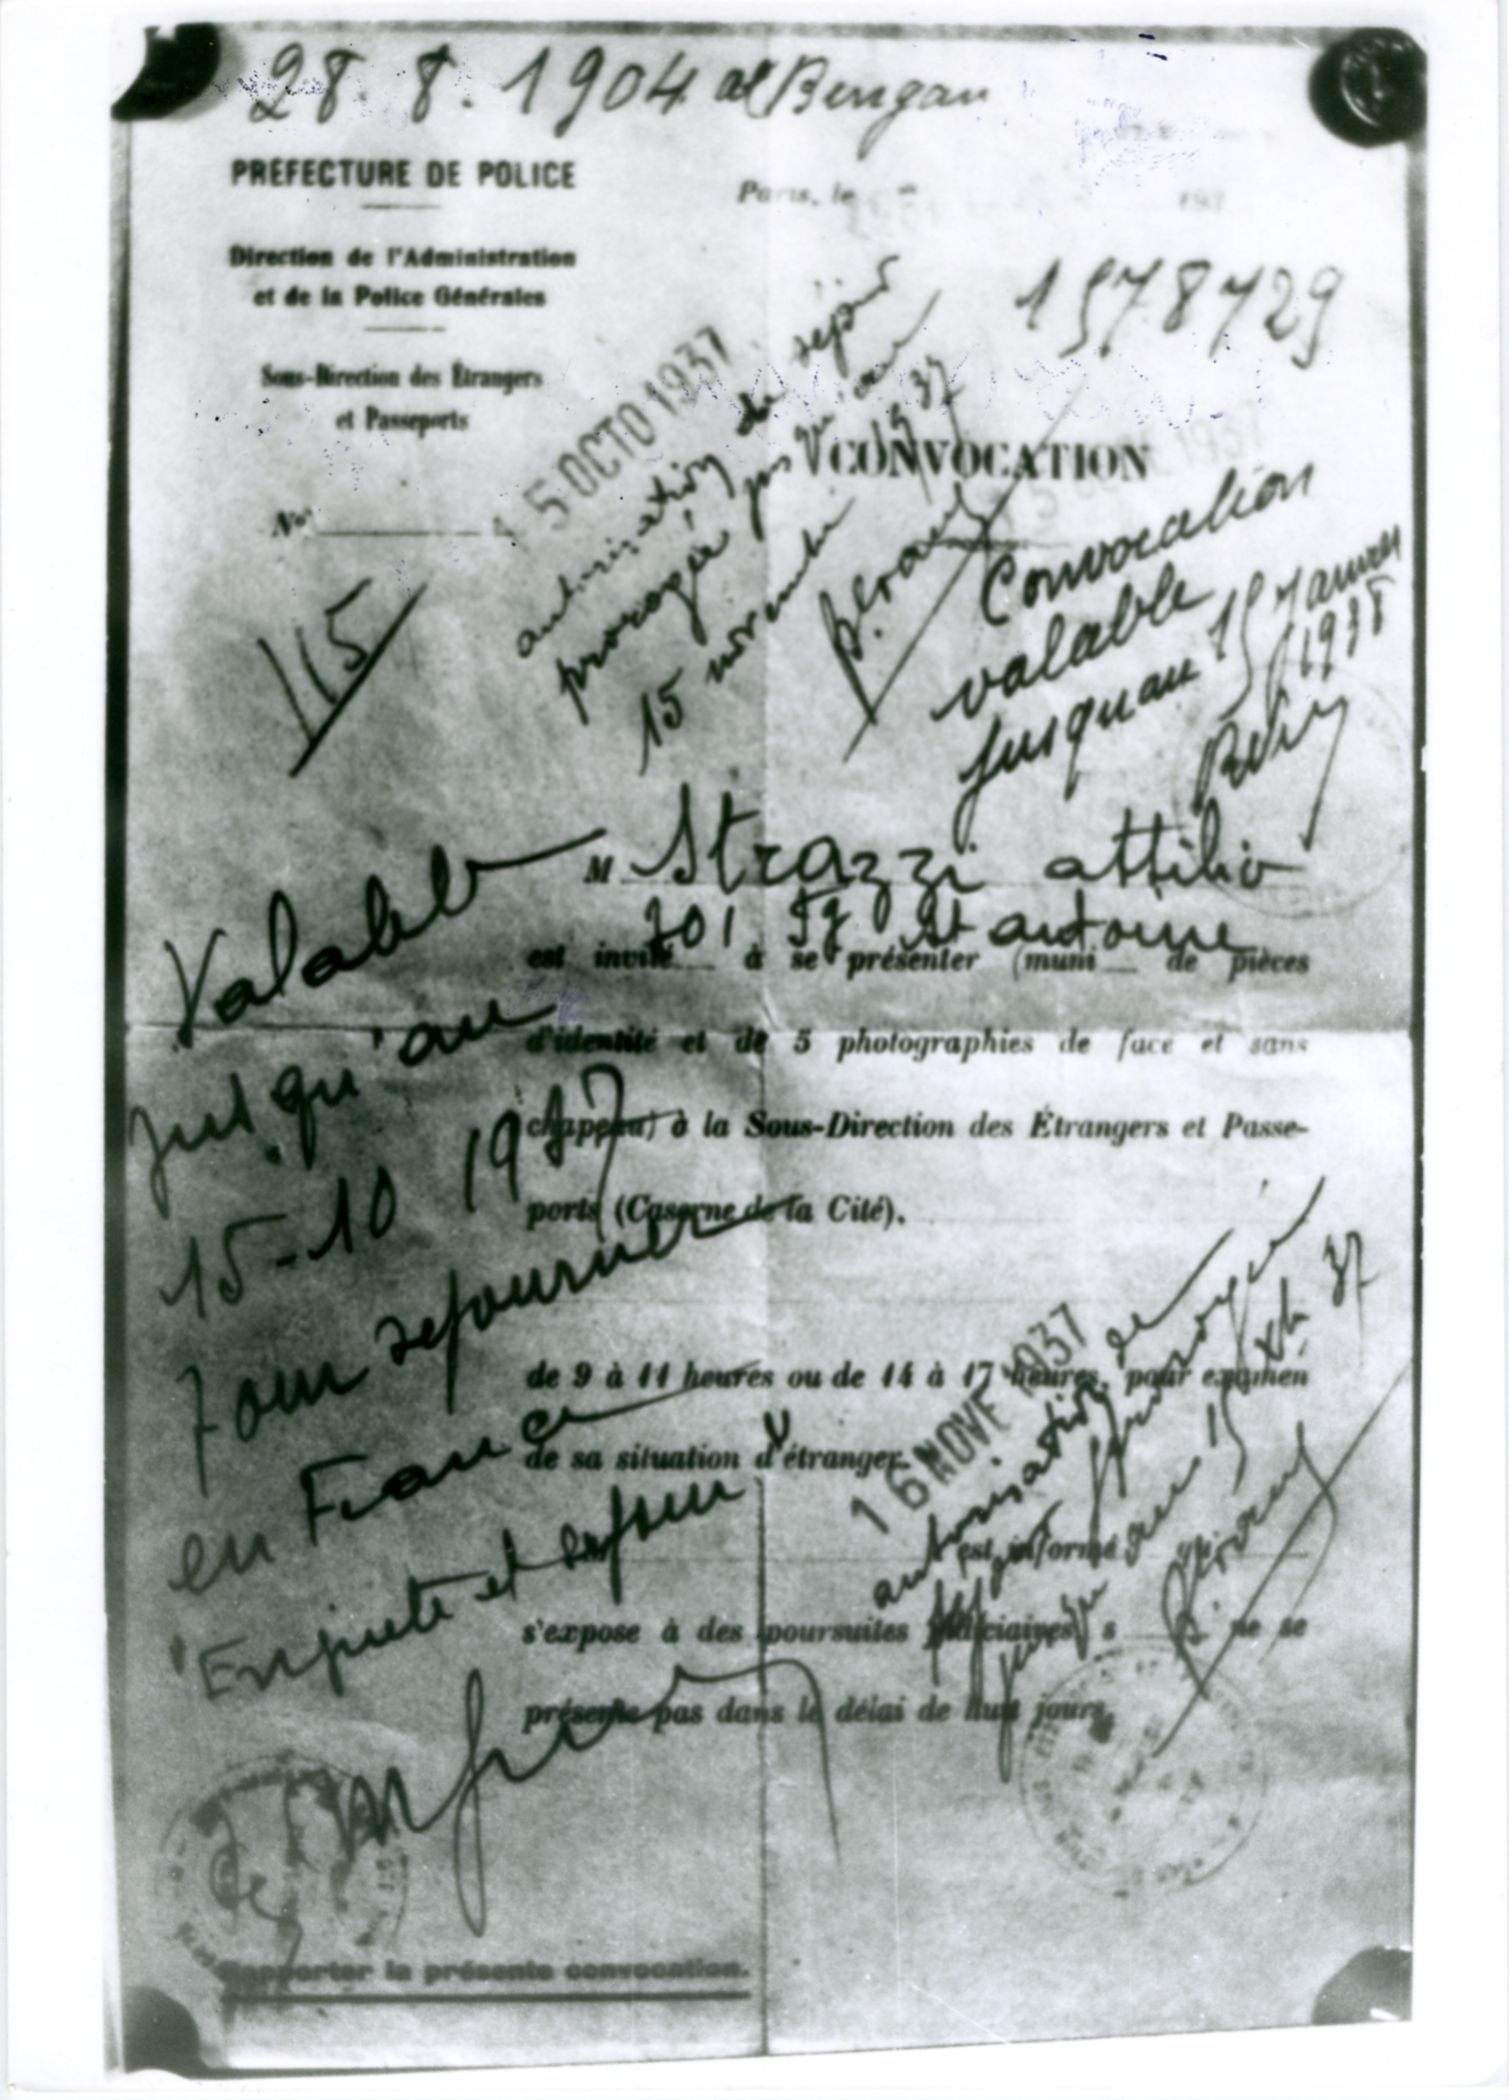 28.8.1904 a Bergam
PREFECTURE DE POLICE
Paris, le 193
Direction de l'Administration
et de la Police Générales
1578729
Sous-Direction des Étrangers
et Passeports
15 OCTO 1937
autorisation de séjour
prorogée jusqu'au
15 novembre 1937
CONVOCATION
No
115
Convocation
valable
jusquau 15 Janvier
1938
M Strazzi attilio
301 Fg St antoine
est invité à se présenter (muni de pièces
d'identité et de 5 photographies de face et sans
chapeau) à la Sous-Direction des Étrangers et Passe-
ports (Caserne de la Cité).
de 9 à 11 heures ou de 14 à 17 heures, pour examen
de sa situation d'étranger.
Il est informé qu'
s'expose à des poursuites judiciaires s ne se
présente pas dans le délai de huit jours.
Valable
jusqu'au
15-10 1937
pour séjourner
en France
Enquete et
16 NOVE 1937
autorisation de
séjour prorogée
jusqu'au 15 Xb 37
Rapporter la présente convocation.